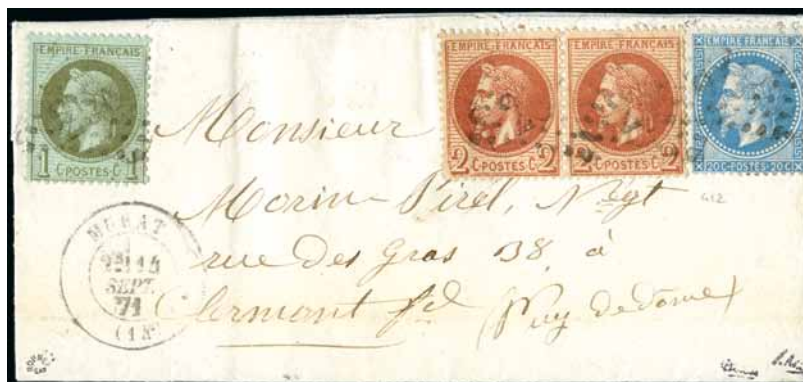 EMPIRE FRANÇAIS
1 C POSTES C 1
EMPIRE FRANÇAIS
2 C POSTES C 2
EMPIRE FRANÇAIS
2 C POSTES C 2
EMPIRE FRANÇAIS
20C POSTES 20C
Monsieur
Morin Pirel, Negt
rue des Gras 38 à
Clermont fd (Puy de dôme)
MURAT
14
SEPT.
71